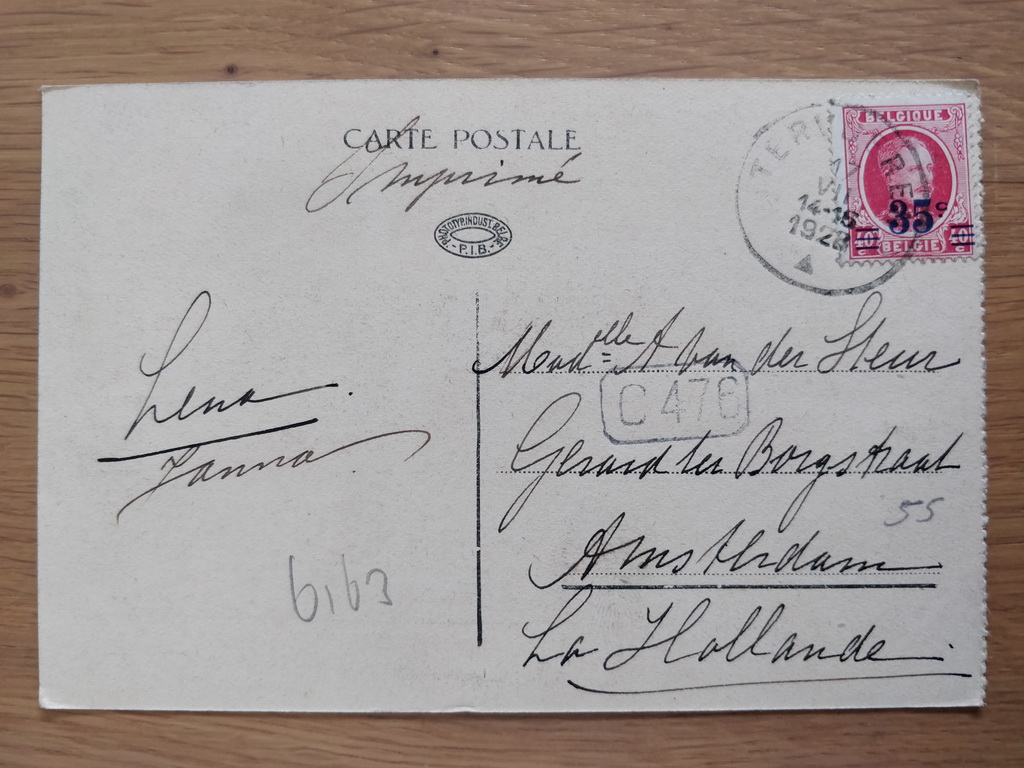 CARTE POSTALE
Imprimé
PHOTOTYP. INDUST. BELGE
- P.I.B. -
BELGIQUE
35c
10c BELGIË 10c
14-15
Lena.
Janna
Madelle A van der Steur
C 476
Gerard ter Borgstraat
55
Amsterdam
La Hollande.
6,63